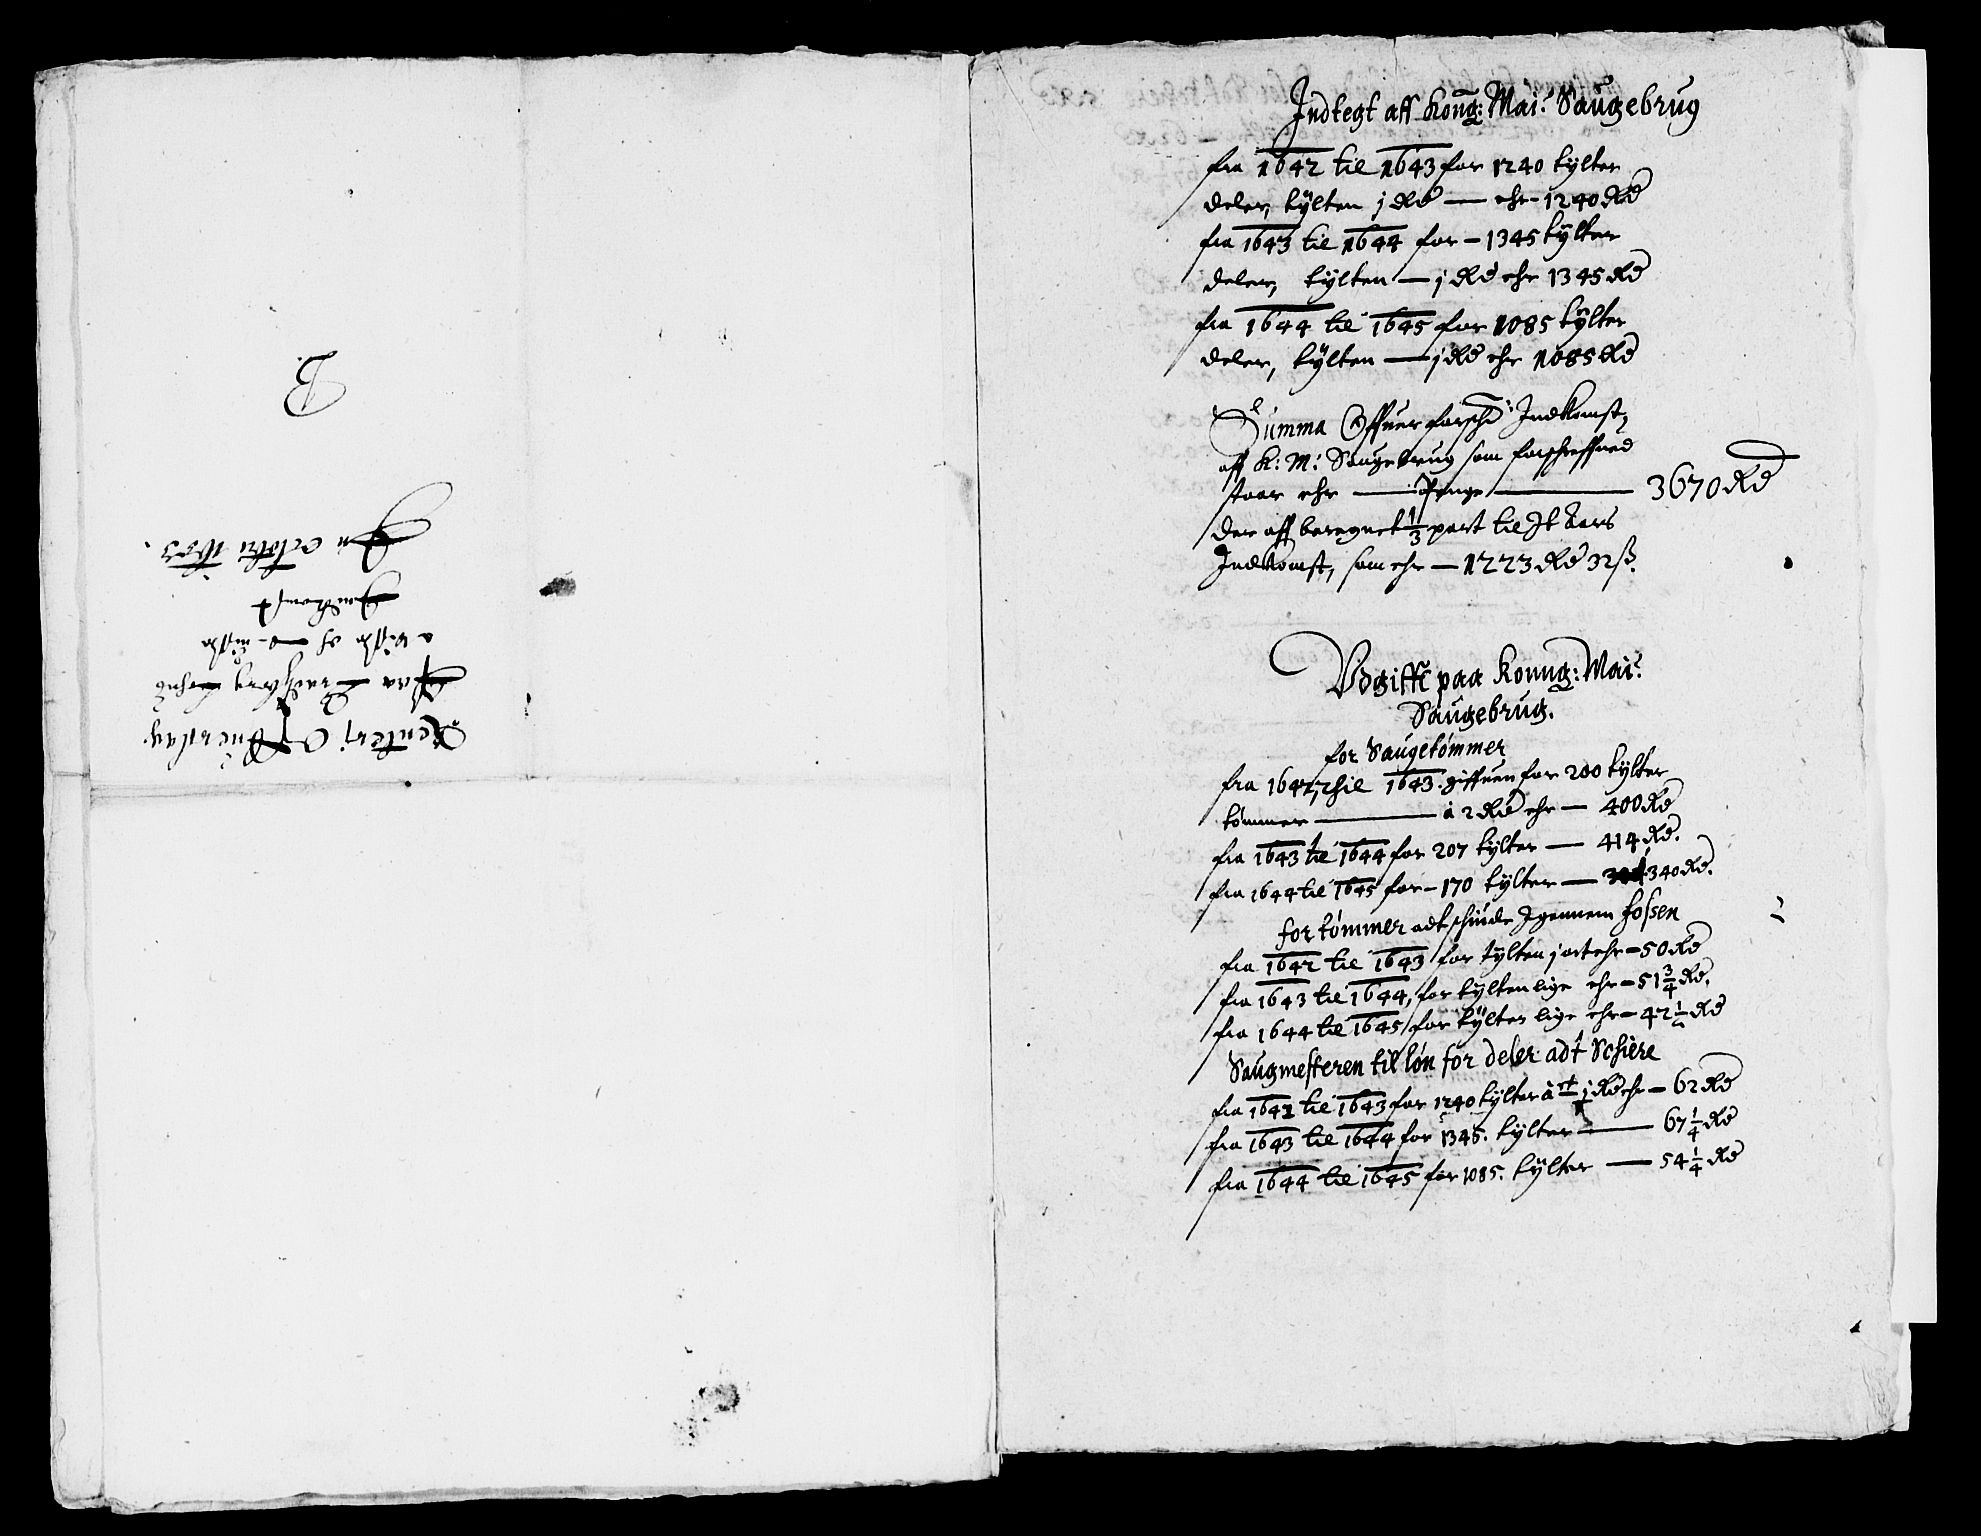 B.
Renterj Offuerslag
Paa Bradsberg Lehns
wisse oc uisse
Indkomst
In octobri 1653.
Indtegt aff Kong: Mai: Saugebrug
fra 1642 til 1643 for 1240 tÿlter
deler, tÿlten j Rd — ehr – 1240 Rd
fra 1643 til 1644 for – 1345 tÿlter
deler, tÿlten — j Rd ehr 1345 Rd
fra 1644 til 1645 for 1085 tÿlter
deler, tÿlten — j Rd ehr 1085 Rd
Summa Offuer forschr: Indkomst,
aff K: M: Saugebrug som forschreffued
staar ehr — Penge — 3670 Rd
der aff beregnet 1/3 part til It Aars
Indkomst, som ehr — 1223 Rd 32 ß.
Vdgifft paa Konng: Mai:
Saugebrug.
for Saugetömmer
fra 1642, thil 1643. giffuen for 200 tÿlter
tömmer — à 2 Rd ehr — 400 Rd
fra 1643 til 1644 for 207 tÿlter — 414 Rd.
fra 1644 til 1645 for – 170 tÿlter — 340 Rd.
for tömmer adt schiude Igennem fossen
fra 1642 til 1643 for tÿlten j ort ehr – 50 Rd
fra 1643 til 1644, for tÿlten lige ehr – 51 3/4 Rd.
fra 1644 til 1645 for tÿlten lige ehr – 42 1/2 Rd
Saugmesteren til lön for deler adt Schiere
fra 1642 til 1643 for 1240 tÿlter à j Rd ehr – 62 Rd
fra 1643 til 1644 for 1345. tÿlter — 67 1/4 Rd
fra 1644 til 1645 for 1085. tÿlter — 54 1/4 Rd